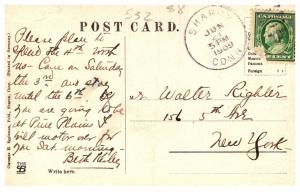 532 88
POST CARD.
SHARON
JUN
5 PM
1909
CONN.
Please plan to
spend the 4th with
me - Come on Saturday
the 3rd and stay
until the 6th. If
you are going to be
at Pine Plains I
will motor over for
you Sat. morning -
Write here.
Mr Walter Righter
156 5th Ave
New York